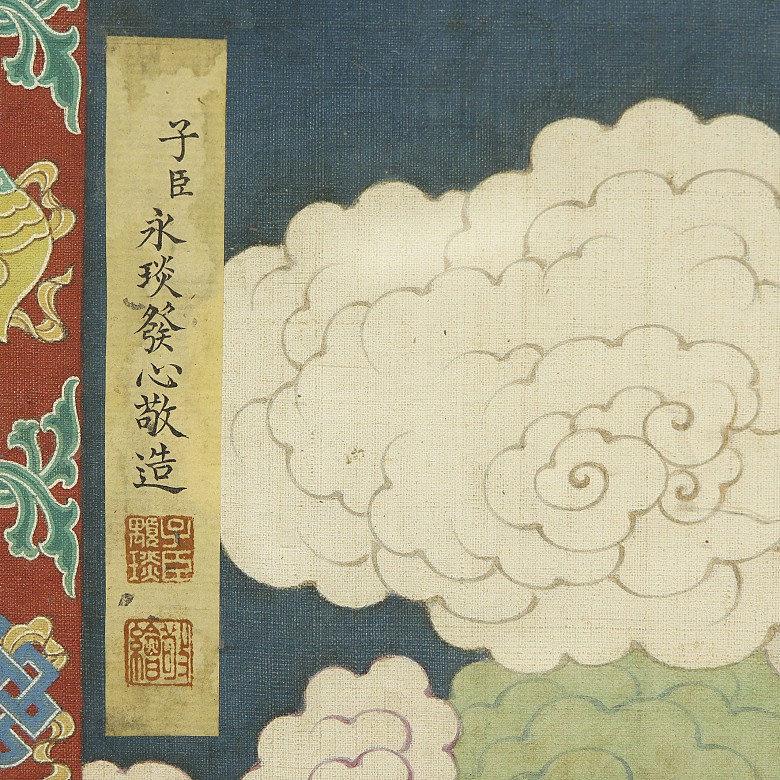 子臣永琰發心敬造
子臣顒琰
敬繪